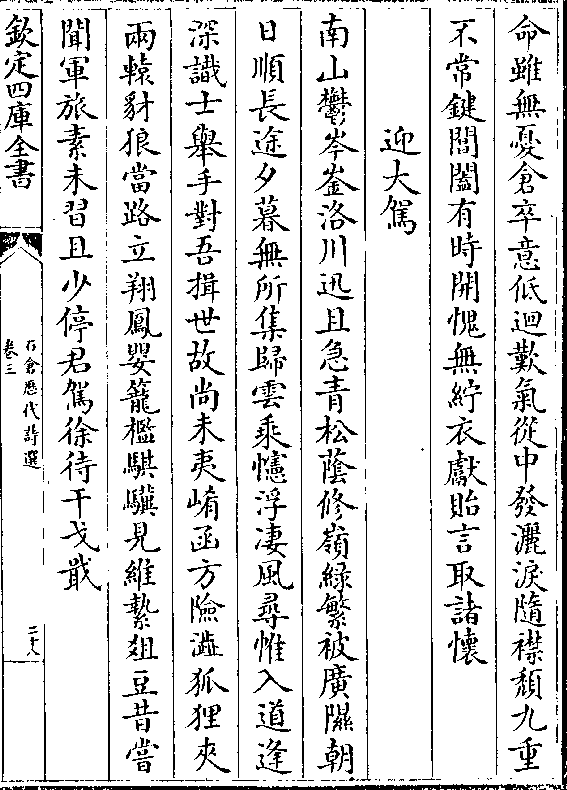 命雖無憂倉卒意低迴歎氣從中發灑淚隨襟頹九重
不常鍵閶闔有時開愧無紵衣獻貽言取諸懷
迎大駕
南山鬱岑崟洛川迅且急青松蔭修嶺綠蘩被廣隰朝
日順長途夕暮無所集歸雲乘幰浮淒風尋帷入道逢
深識士舉手對吾揖世故尚未夷崤函方險澁狐狸夾
兩轅豺狼當路立翔鳳嬰籠檻騏驥見維縶俎豆昔嘗
聞軍旅素未習且少停君駕徐待干戈戢
欽定四庫全書
石倉歷代詩選
卷三
二十八